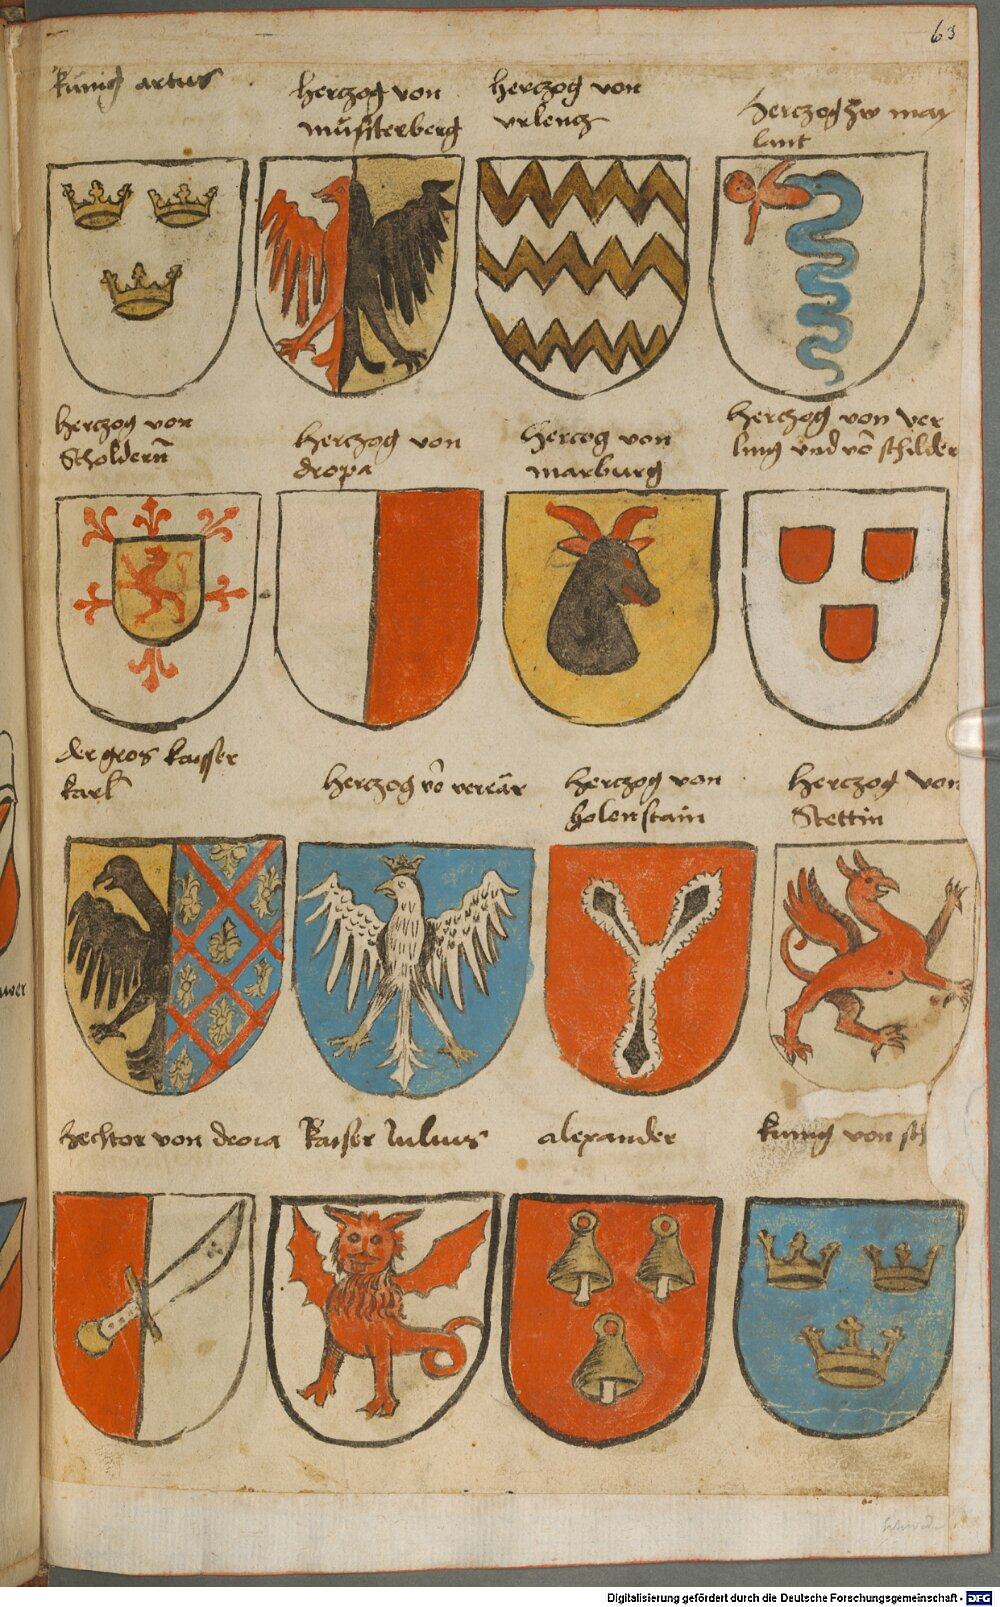 63
kunig artus
herczog von
munsterberg
herczog von
vrlencz
herczog zw may
lant
herczog von
Scholdern̄
herczog von
dropa
hercog von
marburg
herczog von ver
ling vnd vō schilder
der gros kaisser
karl
herczog vō
herczog von
holenstain
herczog von
Stettin
hechtor von droia
kaiser Julius
alexander
kunig von sch
wer
Digitalisierung gefördert durch die Deutsche Forschungsgemeinschaft - DFG